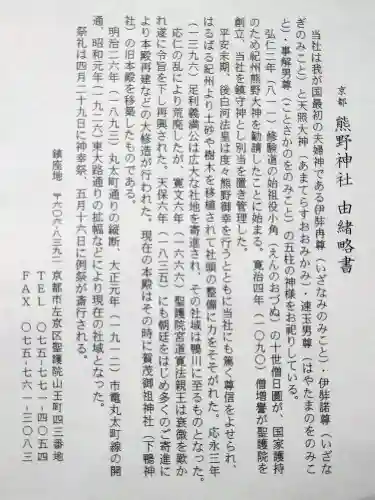 京都 熊野神社 由緒略書
当社は我が国最初の夫婦神である伊弉冉尊（いざなみのみこと）・伊弉諾尊（いざな
ぎのみこと）と天照大神（あまてらすおおみかみ）・速玉男尊（はやたまのをのみこ
と）・事解男尊（ことさかのをのみこと）の五柱の神様をお祀りしている。
弘仁二年（八一一）修験道の始祖役小角（えんのおづぬ）の十世僧日圓が、国家護持
のため紀州熊野大神を勧請したことに始まる。寛治四年（一〇九〇）僧増譽が聖護院を
創立、当社を鎮守神とし別当を置き管理した。
平安末期、後白河法皇は度々熊野御幸を行うとともに当社にも篤く尊信をよせられ、
はるばる紀州より土砂や樹木を移植されて社頭の整備に力をそそがれた。応永三年
（一三九六）足利義満公は広大な社地を寄進され、その社域は鴨川に至るものとなった。
応仁の乱により荒廃したが、寛文六年（一六六六）聖護院宮道寛法親王は衰微を歎か
れ遂に令旨を下し再興された。天保六年（一八三五）にも朝廷をはじめ多くのご寄進に
より本殿再建などの大修造が行われた。現在の本殿はその時に賀茂御祖神社（下鴨神
社）の旧本殿を移築したものである。
明治二六年（一八九三）丸太町通りの縦断、大正元年（一九一二）市電丸太町線の開
通、昭和元年（一九二六）東大路通りの拡幅などにより現在の社域となった。
祭礼は四月二十九日に神幸祭、五月十六日に例祭が斎行される。
鎮座地 〒六〇六‐八三九一 京都市左京区聖護院山王町四三番地
ＴＥＬ 〇七五‐七七一‐四〇五四
ＦＡＸ 〇七五‐七六一‐三〇八三